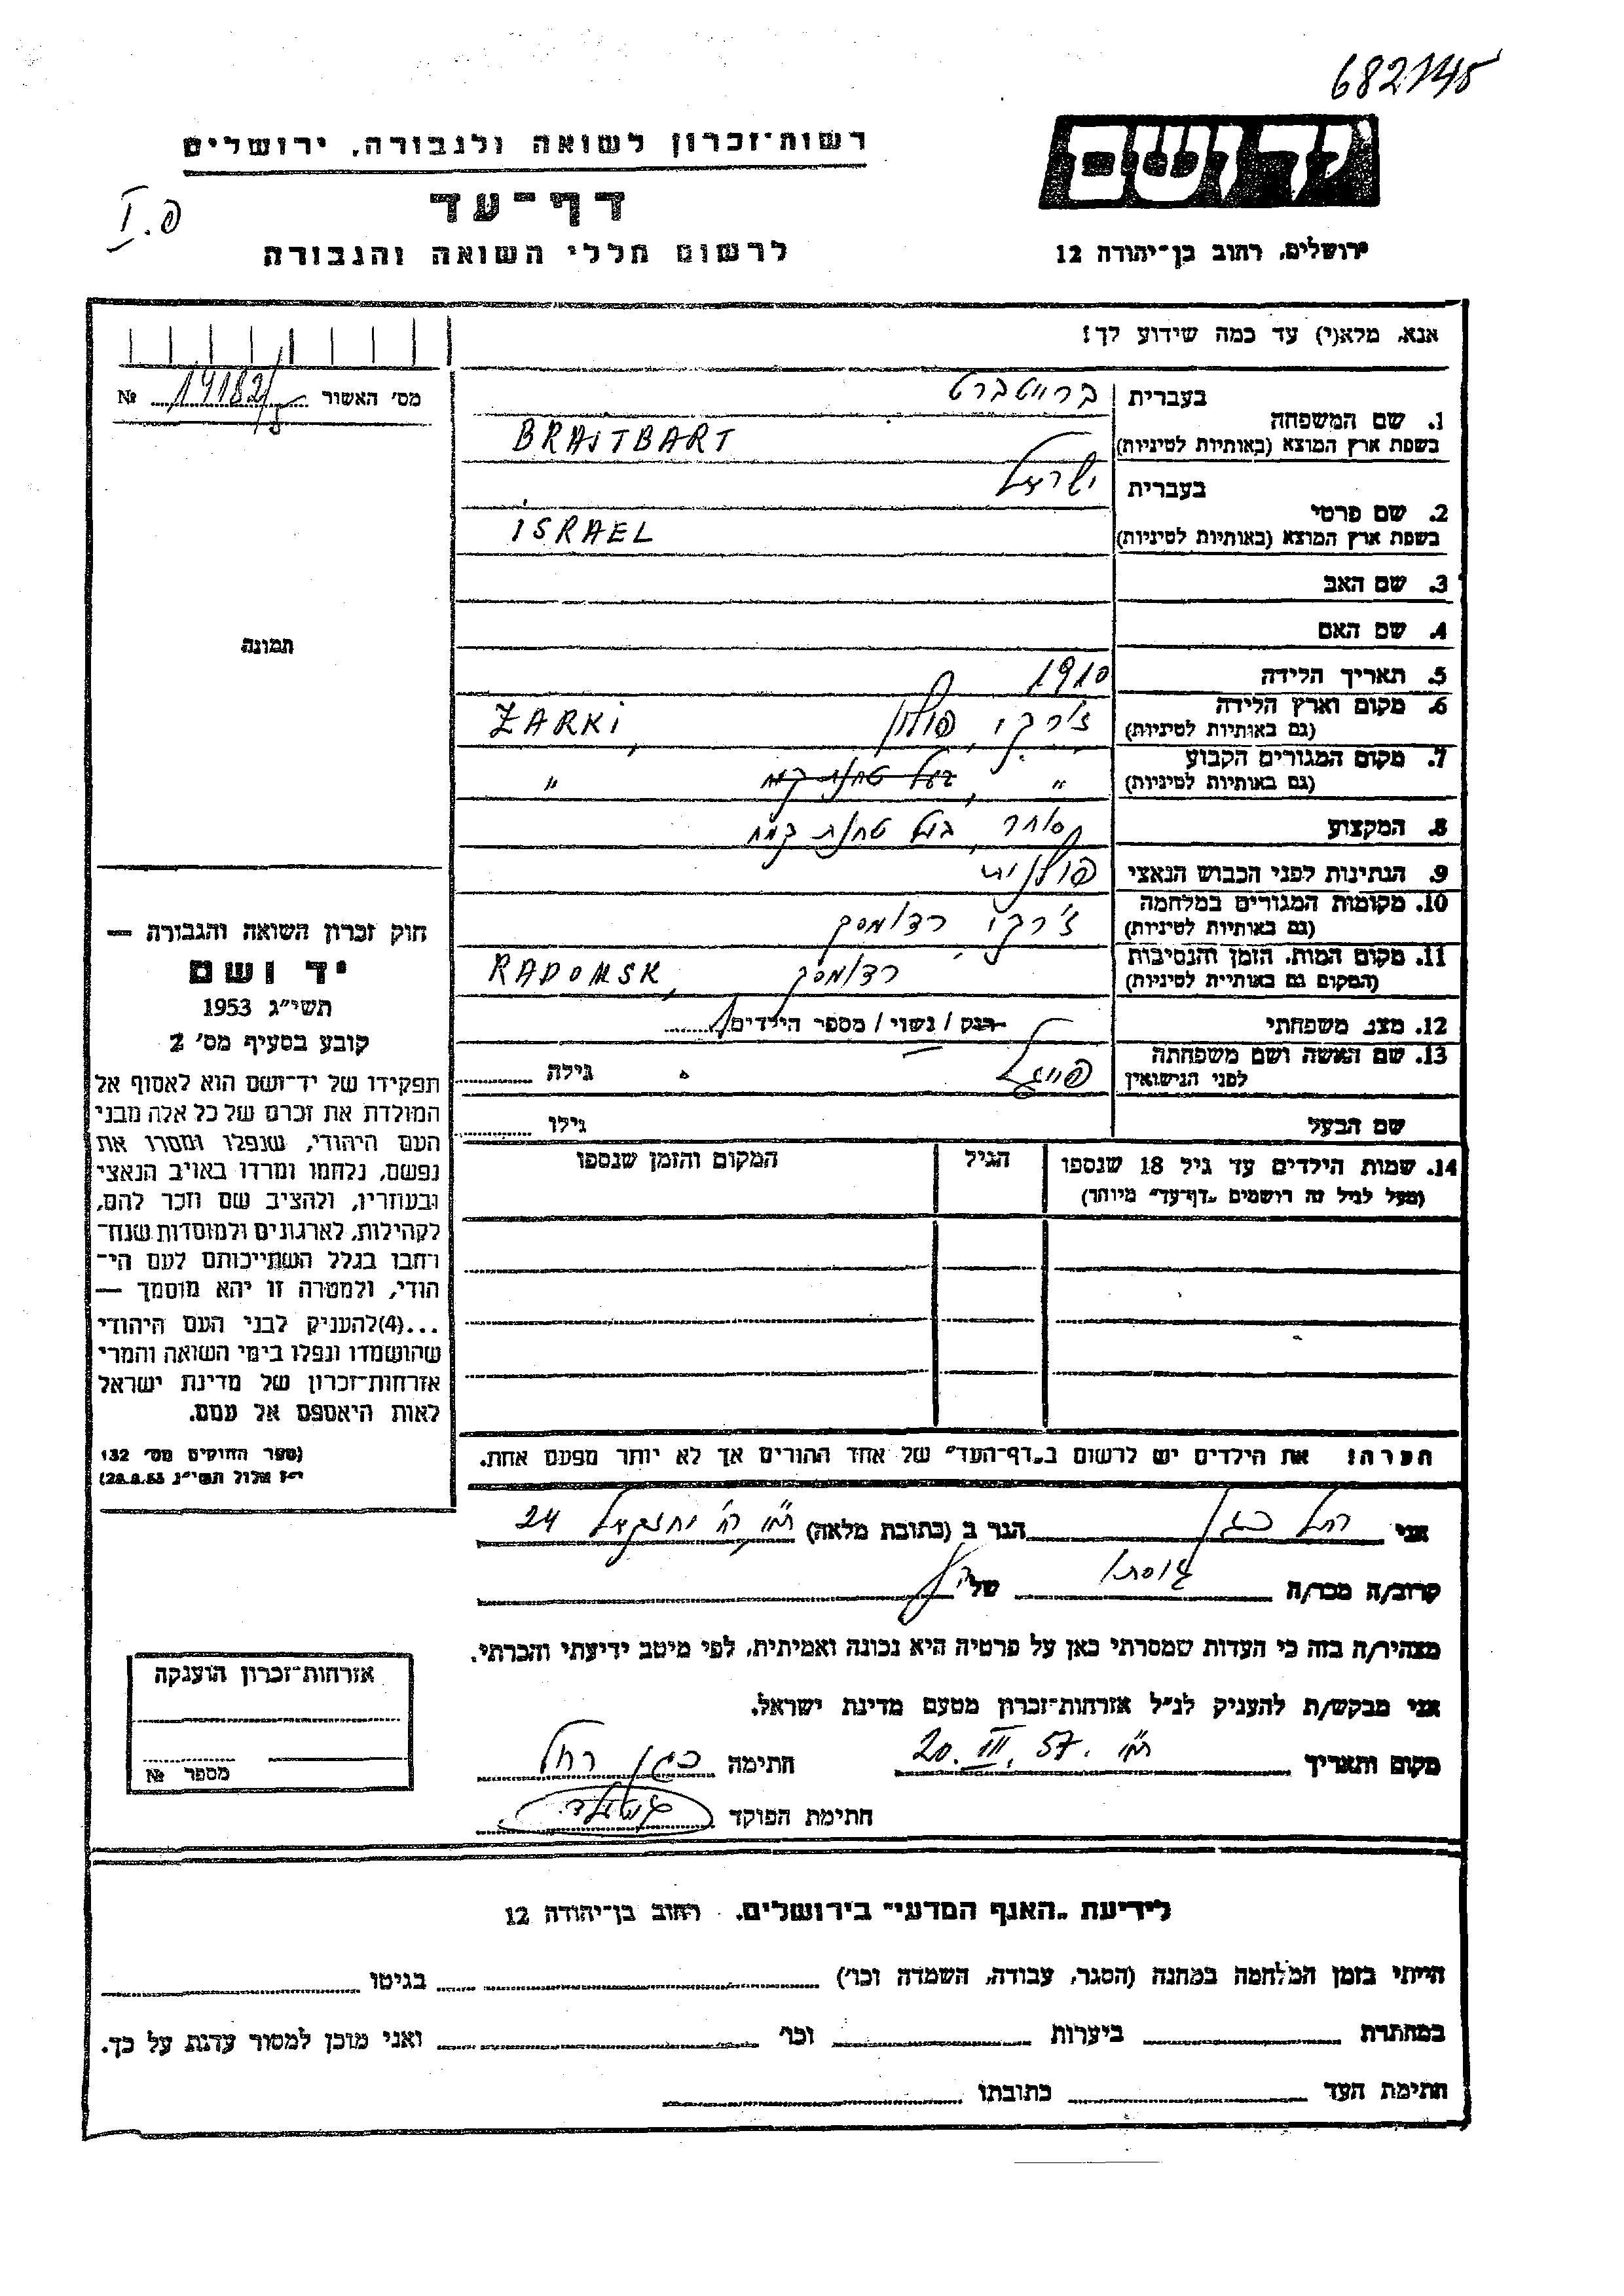 682145
יד ושם
רשות־זכרון לשואה ולגבורה, ירושלים
דף־עד
פ.I
לרשום חללי השואה והגבורה
ירושלים, רחוב בן־יהודה 12
אנא, מלא(י) עד כמה שידוע לך!
מס' האשור 14182/ №
1. שם המשפחה בעברית ברייטברט
בשפת ארץ המוצא (באותיות לטיניות) BRAJTBART
2. שם פרטי בעברית ישראל
בשפת ארץ המוצא (באותיות לטיניות) ISRAEL
3. שם האב
4. שם האם
תמונה
5. תאריך הלידה 1910
6. מקום וארץ הלידה (גם באותיות לטיניות) ז'רקי, פולין ZARKI,
7. מקום המגורים הקבוע (גם באותיות לטיניות) " , בעל טחנת קמח "
8. המקצוע סוחר, בעל טחנת קמח
9. הנתינות לפני הכבוש הנאצי פולנית
10. מקומות המגורים במלחמה (גם באותיות לטיניות) ז'רקי, רדומסק
11. מקום המות, הזמן והנסיבות (המקום גם באותיות לטיניות) רדומסק RADOMSK,
12. מצב משפחתי רווק / נשוי / מספר הילדים 1
13. שם האשה ושם משפחתה לפני הנישואין פייגל גילה
שם הבעל גילו
14. שמות הילדים עד גיל 18 שנספו הגיל המקום והזמן שנספו
(מעל לגיל זה רושמים "דף־עד" מיוחד)
חוק זכרון השואה והגבורה —
יד ושם
תשי"ג 1953
קובע בסעיף מס' 2
תפקידו של יד־ושם הוא לאסוף אל
המולדת את זכרם של כל אלה מבני
העם היהודי, שנפלו ומסרו את
נפשם, נלחמו ומרדו באויב הנאצי
ובעוזריו, ולהציב שם וזכר להם,
לקהילות, לארגונים ולמוסדות שנח־
רחבו בגלל השתייכותם לעם הי־
הודי, ולמטרה זו יהא מוסמך —
...(4)להעניק לבני העם היהודי
שהושמדו ונפלו בימי השואה והמרי
אזרחות־זכרון של מדינת ישראל
לאות היאספם אל עמם.
(ספר החוקים מס' 132
י"ז אלול תשי"ג 28.8.53)
הערה: את הילדים יש לרשום ב"דף־העד" של אחד ההורים אך לא יותר מפעם אחת.
אני רחל כגן הגר ב (כתובת מלאה) ת"א, רח' יחזקאל 24
קרוב/ה מכר/ה גיסתו של הנ"ל
מצהיר/ה בזה כי העדות שמסרתי כאן על פרטיה היא נכונה ואמיתית, לפי מיטב ידיעתי והכרתי.
אני מבקש/ת להעניק לנ"ל אזרחות־זכרון מטעם מדינת ישראל.
מקום ותאריך ת"א 20.III.57. חתימה כגן רחל
חתימת הפוקד
אזרחות־זכרון הוענקה
מספר №
לידיעת "האגף המדעי" בירושלים. רחוב בן־יהודה 12
הייתי בזמן המלחמה במחנה (הסגר, עבודה, השמדה וכו') בגיטו
במחתרת ביערות וכו' ואני מוכן למסור עדות על כך.
חתימת העד כתובתו